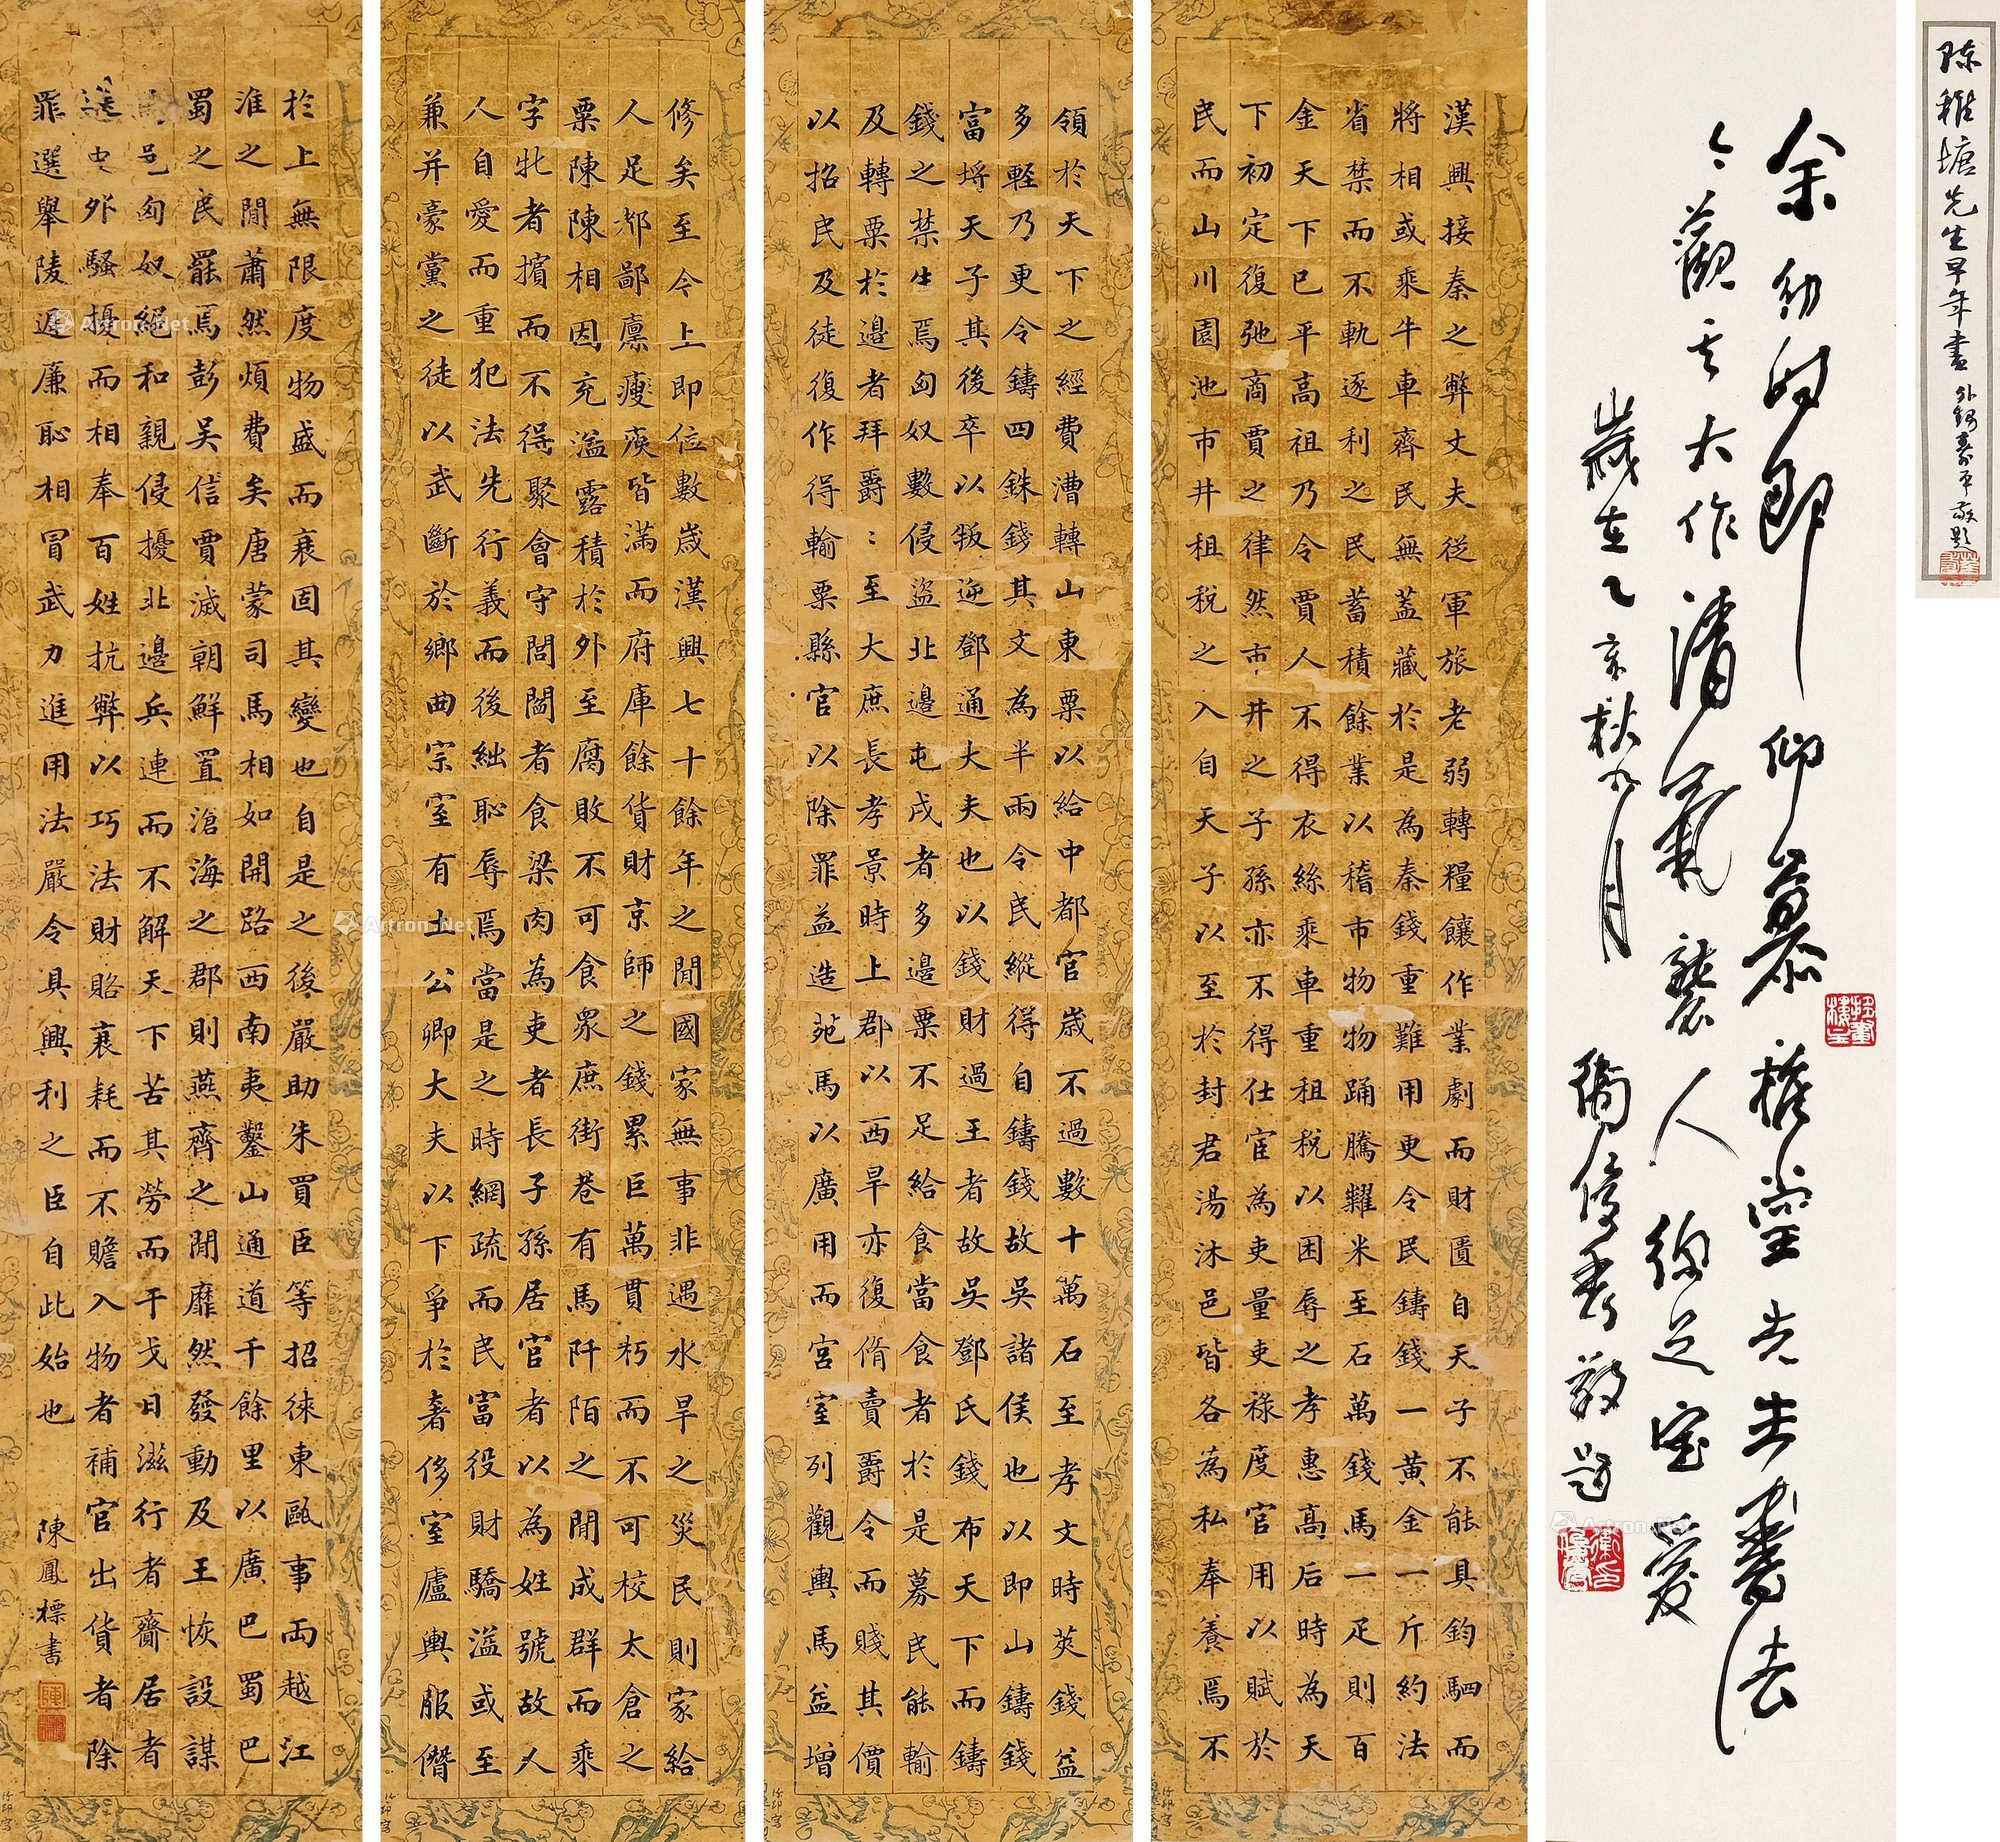 陳稚塘先生早年書 外甥秦平敬題
余幼時即仰慕穉堂先生書法
今觀其大作清氣襲人彌足寶愛
歲在乙亥秋九月 衛俊秀敬題
漢興接秦之弊丈夫從軍旅老弱轉糧饟作業劇而財匱自天子不能具鈞駟而
將相或乘牛車齊民無蓋藏於是為秦錢重難用更令民鑄錢一黃金一斤約法
省禁而不軌逐利之民蓄積餘業以稽市物物踊騰糶米至石萬錢馬一疋則百
金天下已平高祖乃令賈人不得衣絲乘車重租稅以困辱之孝惠高后時為天
下初定復弛商賈之律然市井之子孫亦不得仕宦為吏量吏祿度官用以賦於
民而山川園池市井租稅之入自天子以至於封君湯沐邑皆各為私奉養焉不
領於天下之經費漕轉山東粟以給中都官歲不過數十萬石至孝文時莢錢益
多輕乃更令鑄四銖錢其文為半兩令民縱得自鑄錢故吳諸侯也以即山鑄錢
富埒天子其後卒以叛逆鄧通大夫也以錢財過王者故吳鄧氏錢布天下而鑄
錢之禁生焉匈奴數侵盜北邊屯戍者多邊粟不足給食當食者於是募民能輸
及轉粟於邊者拜爵:至大庶長孝景時上郡以西旱亦復脩賣爵令而賤其價
以招民及徒復作得輸粟縣官以除罪益造苑馬以廣用而宮室列觀輿馬益增
修矣至今上即位數歲漢興七十餘年之間國家無事非遇水旱之災民則家給
人足都鄙廩瘦庾皆滿而府庫餘貨財京師之錢累巨萬貫朽而不可校太倉之
粟陳陳相因充溢露積於外至腐敗不可食眾庶街巷有馬阡陌之間成群而乘
字牝者擯而不得聚會守閭閻者食粱肉為吏者長子孫居官者以為姓號故人
人自愛而重犯法先行義而後絀恥辱焉當是之時網疏而民富役財驕溢或至
兼并豪黨之徒以武斷於鄉曲宗室有土公卿大夫以下爭於奢侈室廬輿服僭
於上無限度物盛而衰固其變也自是之後嚴助朱買臣等招徠東甌事兩越江
淮之間蕭然煩費矣唐蒙司馬相如開路西南夷鑿山通道千餘里以廣巴蜀巴
蜀之民罷焉彭吳信賈滅朝鮮置滄海之郡則燕齊之間靡然發動及王恢設謀
馬邑匈奴絕和親侵擾北邊兵連而不解天下苦其勞而干戈日滋行者齎居者
送中外騷擾而相奉百姓抗弊以巧法財賂衰耗而不贍入物者補官出貨者除
罪選舉陵遲廉恥相冒武力進用法嚴令具興利之臣自此始也 陳鳳標書
Artron.Net
Artron.Net
Artron.Net